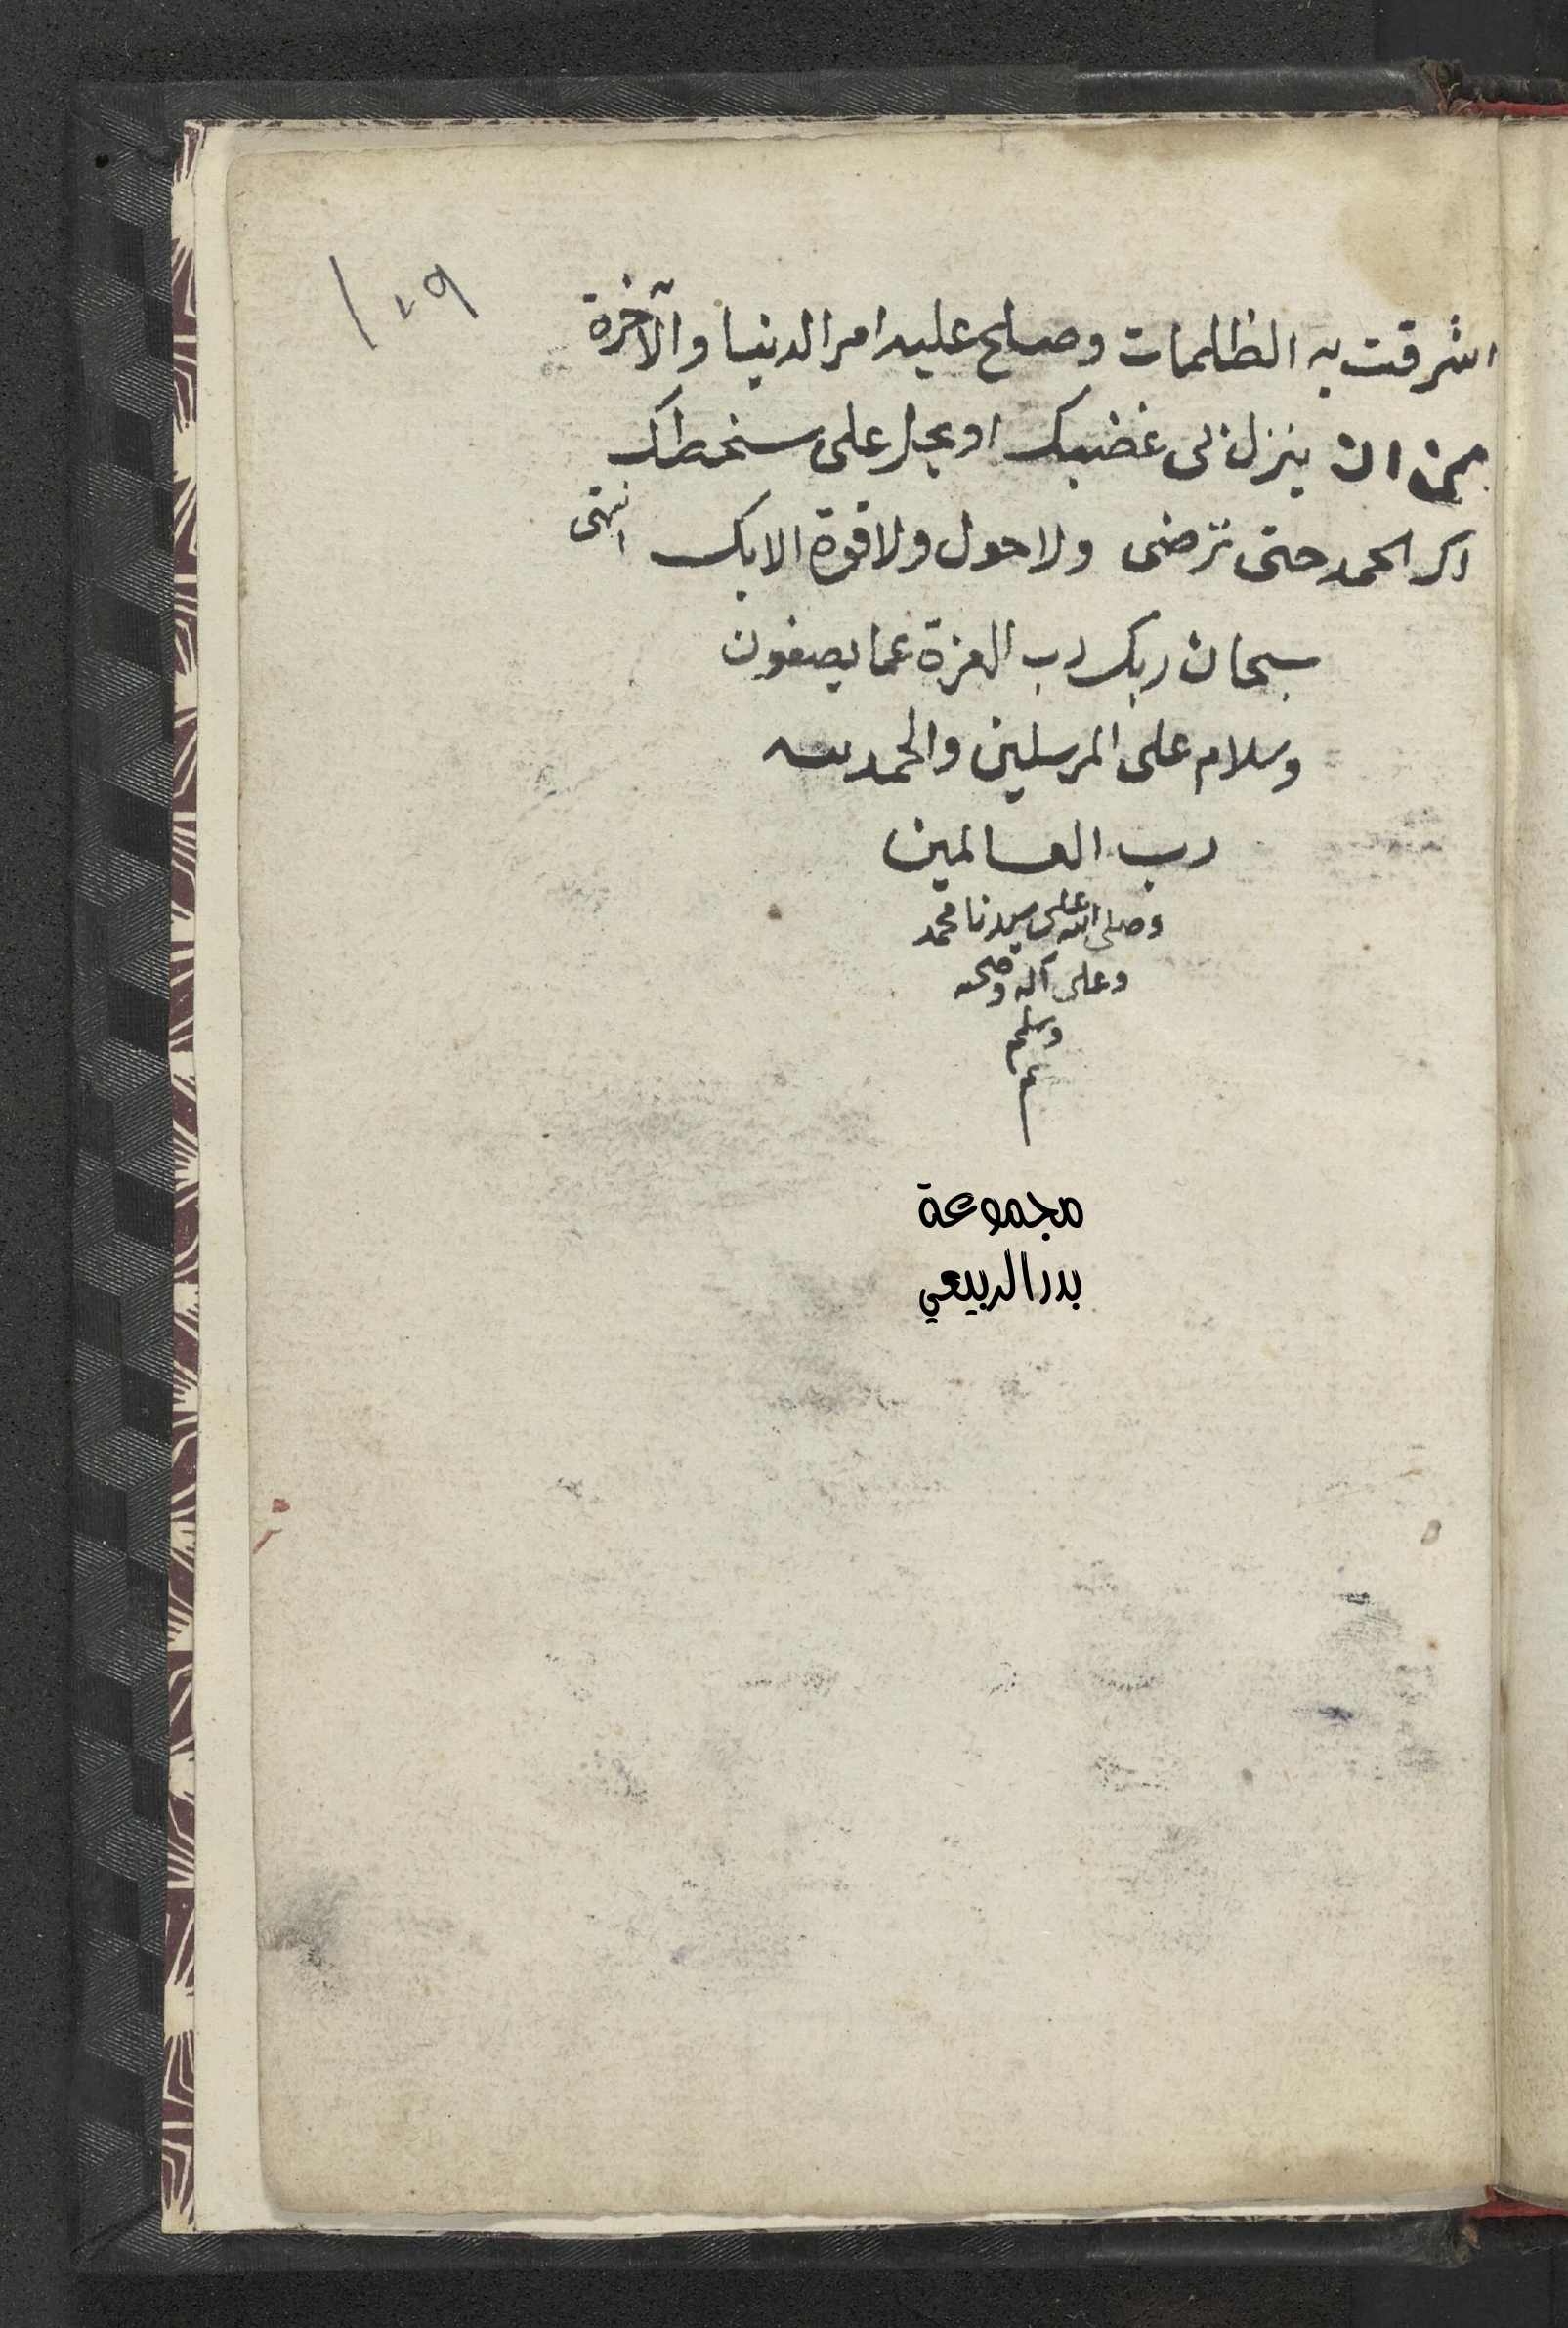 ١٠٩
اشرقت به الظلمات وصلح عليه امر الدنيا والآخرة
من ان ينزل بى غضبك او يحل على سخطك
لك الحمد حتى ترضى ولا حول ولا قوة الا بك انتهى
سبحان ربك رب العزة عما يصفون
وسلام على المرسلين والحمد لله
رب العالمين
وصلى الله على سيدنا محمد
وعلى آله وصحبه
وسلم
م
مجموعة
بدر الربيعي